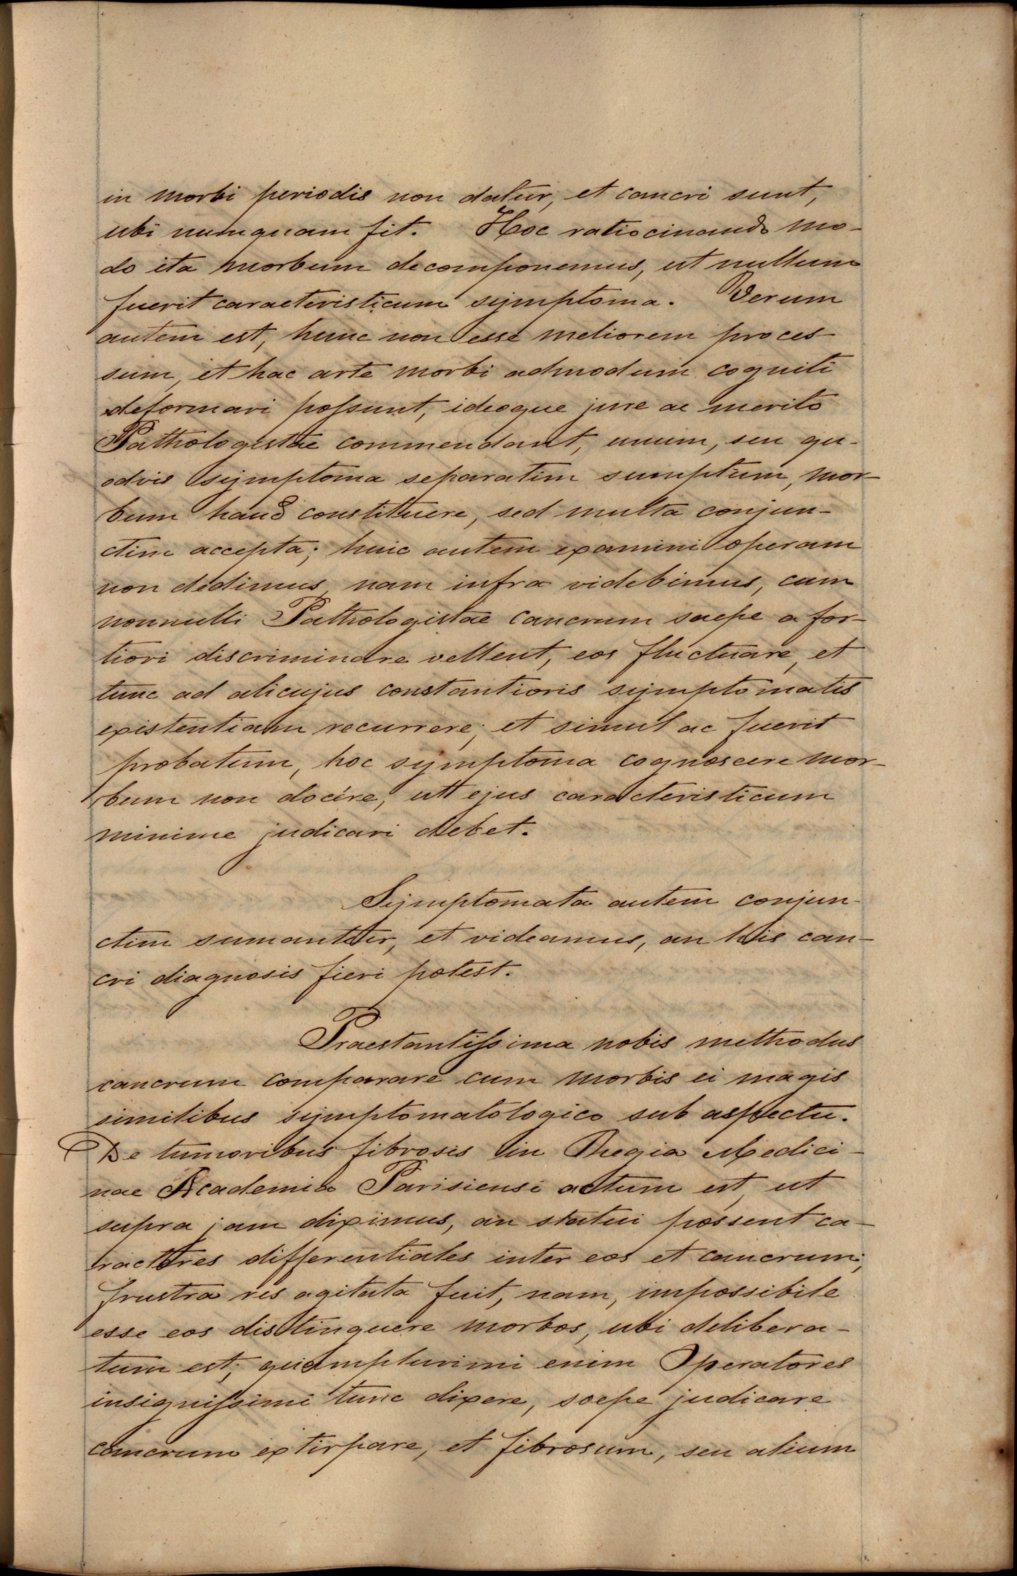 in morbi periodis non datur, et cancri sunt,
ubi nunquam fit. Hoc ratiocinando mo-
do ita morbum decomponemus, ut nullum
fuerit caracteristicum symptoma. Verum
autem est, hunc non esse meliorem proces
sum, et hac arte morbi admodum cogniti
deformari possunt, ideoque jure ac merito
Pathologistae commendant, unum, seu qu-
odvis symptoma separatim sumptum, mor-
bum haud constituere, sed multa conjun-
ctim accepta; huic autem examini operam
non dedimus, nam infra videbimus, cum
nonnulli Pathologistae cancrum saepe a for-
tiori discriminare vellent, eos fluctuare, et
tunc ad alicujus constantioris symptomatis
existentiam recurrere; et simul ac fuerit
probatum, hoc symptoma cognoscere mor-
bum non docere, utt ejus caracteristicum
minime judicari debet.
Symptomata autem conjun-
ctim sumantur, et videamus, an his can-
cri diagnosis fieri potest.
Praestantissima nobis methodus
cancrum comparare cum morbis ei magis
similibus symptomatologico sub aspectu.
De tumoribus fibrosis in Regia Medici-
nae Academia Parisiensi actum est, ut
supra jam diximus, an statui possent ca-
racteres differentiales inter eos et cancrum;
frustra res agitata fuit, nam, impossibile
esse eos distinguere morbos, ubi delibera-
tum est; quamplurimi enim Operatores
insignissimi tunc dixere, saepe judicare
cancrum extirpare, et fibrosum, seu alium